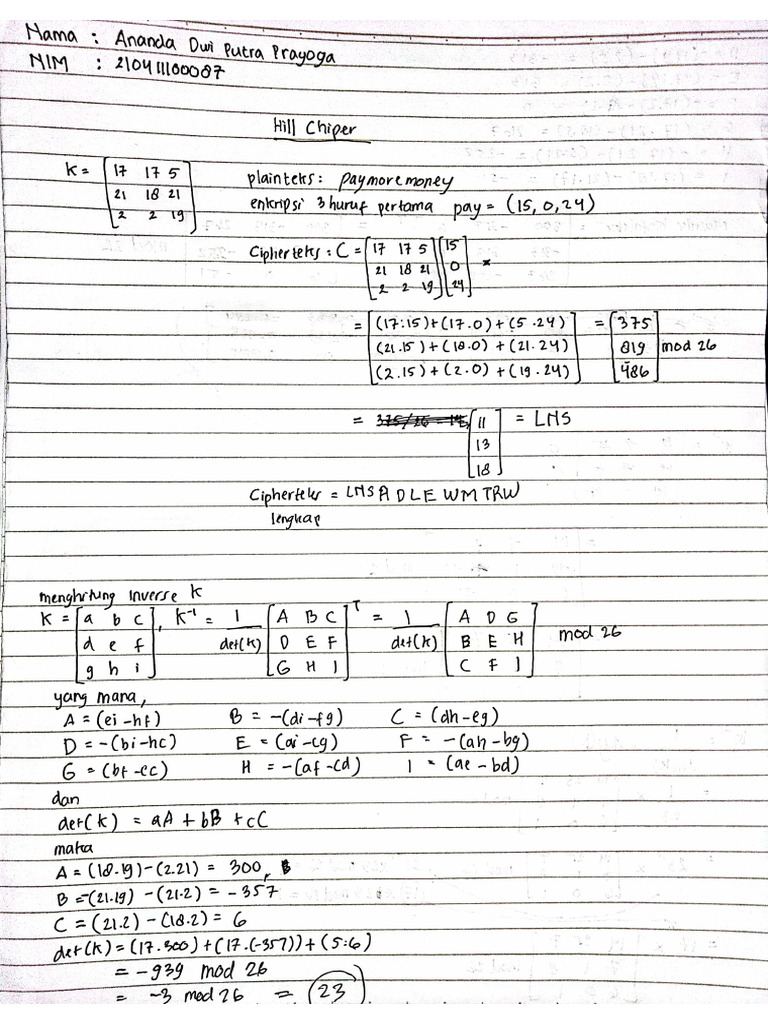 Nama : Ananda Dwi Putra Prayoga
NIM : 210411100087
Hill Chiper
K = [17 17 5
21 18 21
2 2 19]
plainteks: paymoremoney
enkripsi 3 huruf pertama pay = (15, 0, 24)
Cipherteks : C = [17 17 5 [15
21 18 21 0
2 2 19] 24]
= [(17.15)+(17.0)+(5.24) = [375
(21.15)+(18.0)+(21.24) 819 mod 26
(2.15)+(2.0)+(19.24)] 486]
= [11 = LNS
13
18]
Cipherteks = LNSADLEWMTRW
lengkap
menghitung inverse K
K = [a b c , K⁻¹ = 1 [A B C]ᵀ = 1 [A D G
d e f det(K) D E F det(K) B E H mod 26
g h i] G H I] C F I]
yang mana,
A = (ei-hf) B = -(di-fg) C = (dh-eg)
D = -(bi-hc) E = (ai-cg) F = -(ah-bg)
G = (bf-ec) H = -(af-cd) I = (ae-bd)
dan
det(K) = aA + bB + cC
maka
A = (18.19)-(2.21) = 300,
B = -(21.19)-(21.2) = -357
C = (21.2)-(18.2) = 6
det(K) = (17.300)+(17.(-357))+(5.6)
= -939 mod 26
= -3 mod 26 = 23